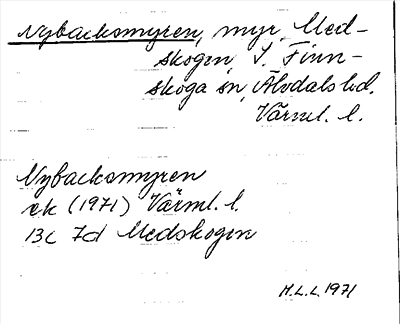 Nybackomyren, myr, Med-
skogen, S. Finn-
skoga sn, Älvdals hd.
Värml. l.
Nybackomyren
ek (1971) Värml. l.
13c 7d Medskogen
M.L.L. 1971